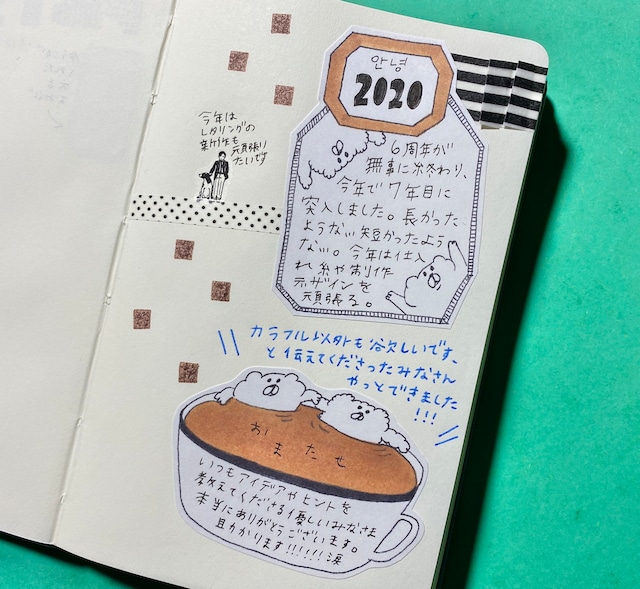 안녕
2020
今年は
レタリングの
新作も
頑張り
たいです
6周年が
無事に終わり、
今年で7年目に
突入しました。長かった
ような短かったよう
な。今年は仕入
れ糸や制作
デザインを
頑張る。
カラフル以外も欲しいです、
と伝えてくださったみなさん
やっとできました
!!!
おまたせ
いつもアイデアやヒントを
教えてくださる優しいみなさま
本当にありがとうございます。
助かります!!!!!!涙